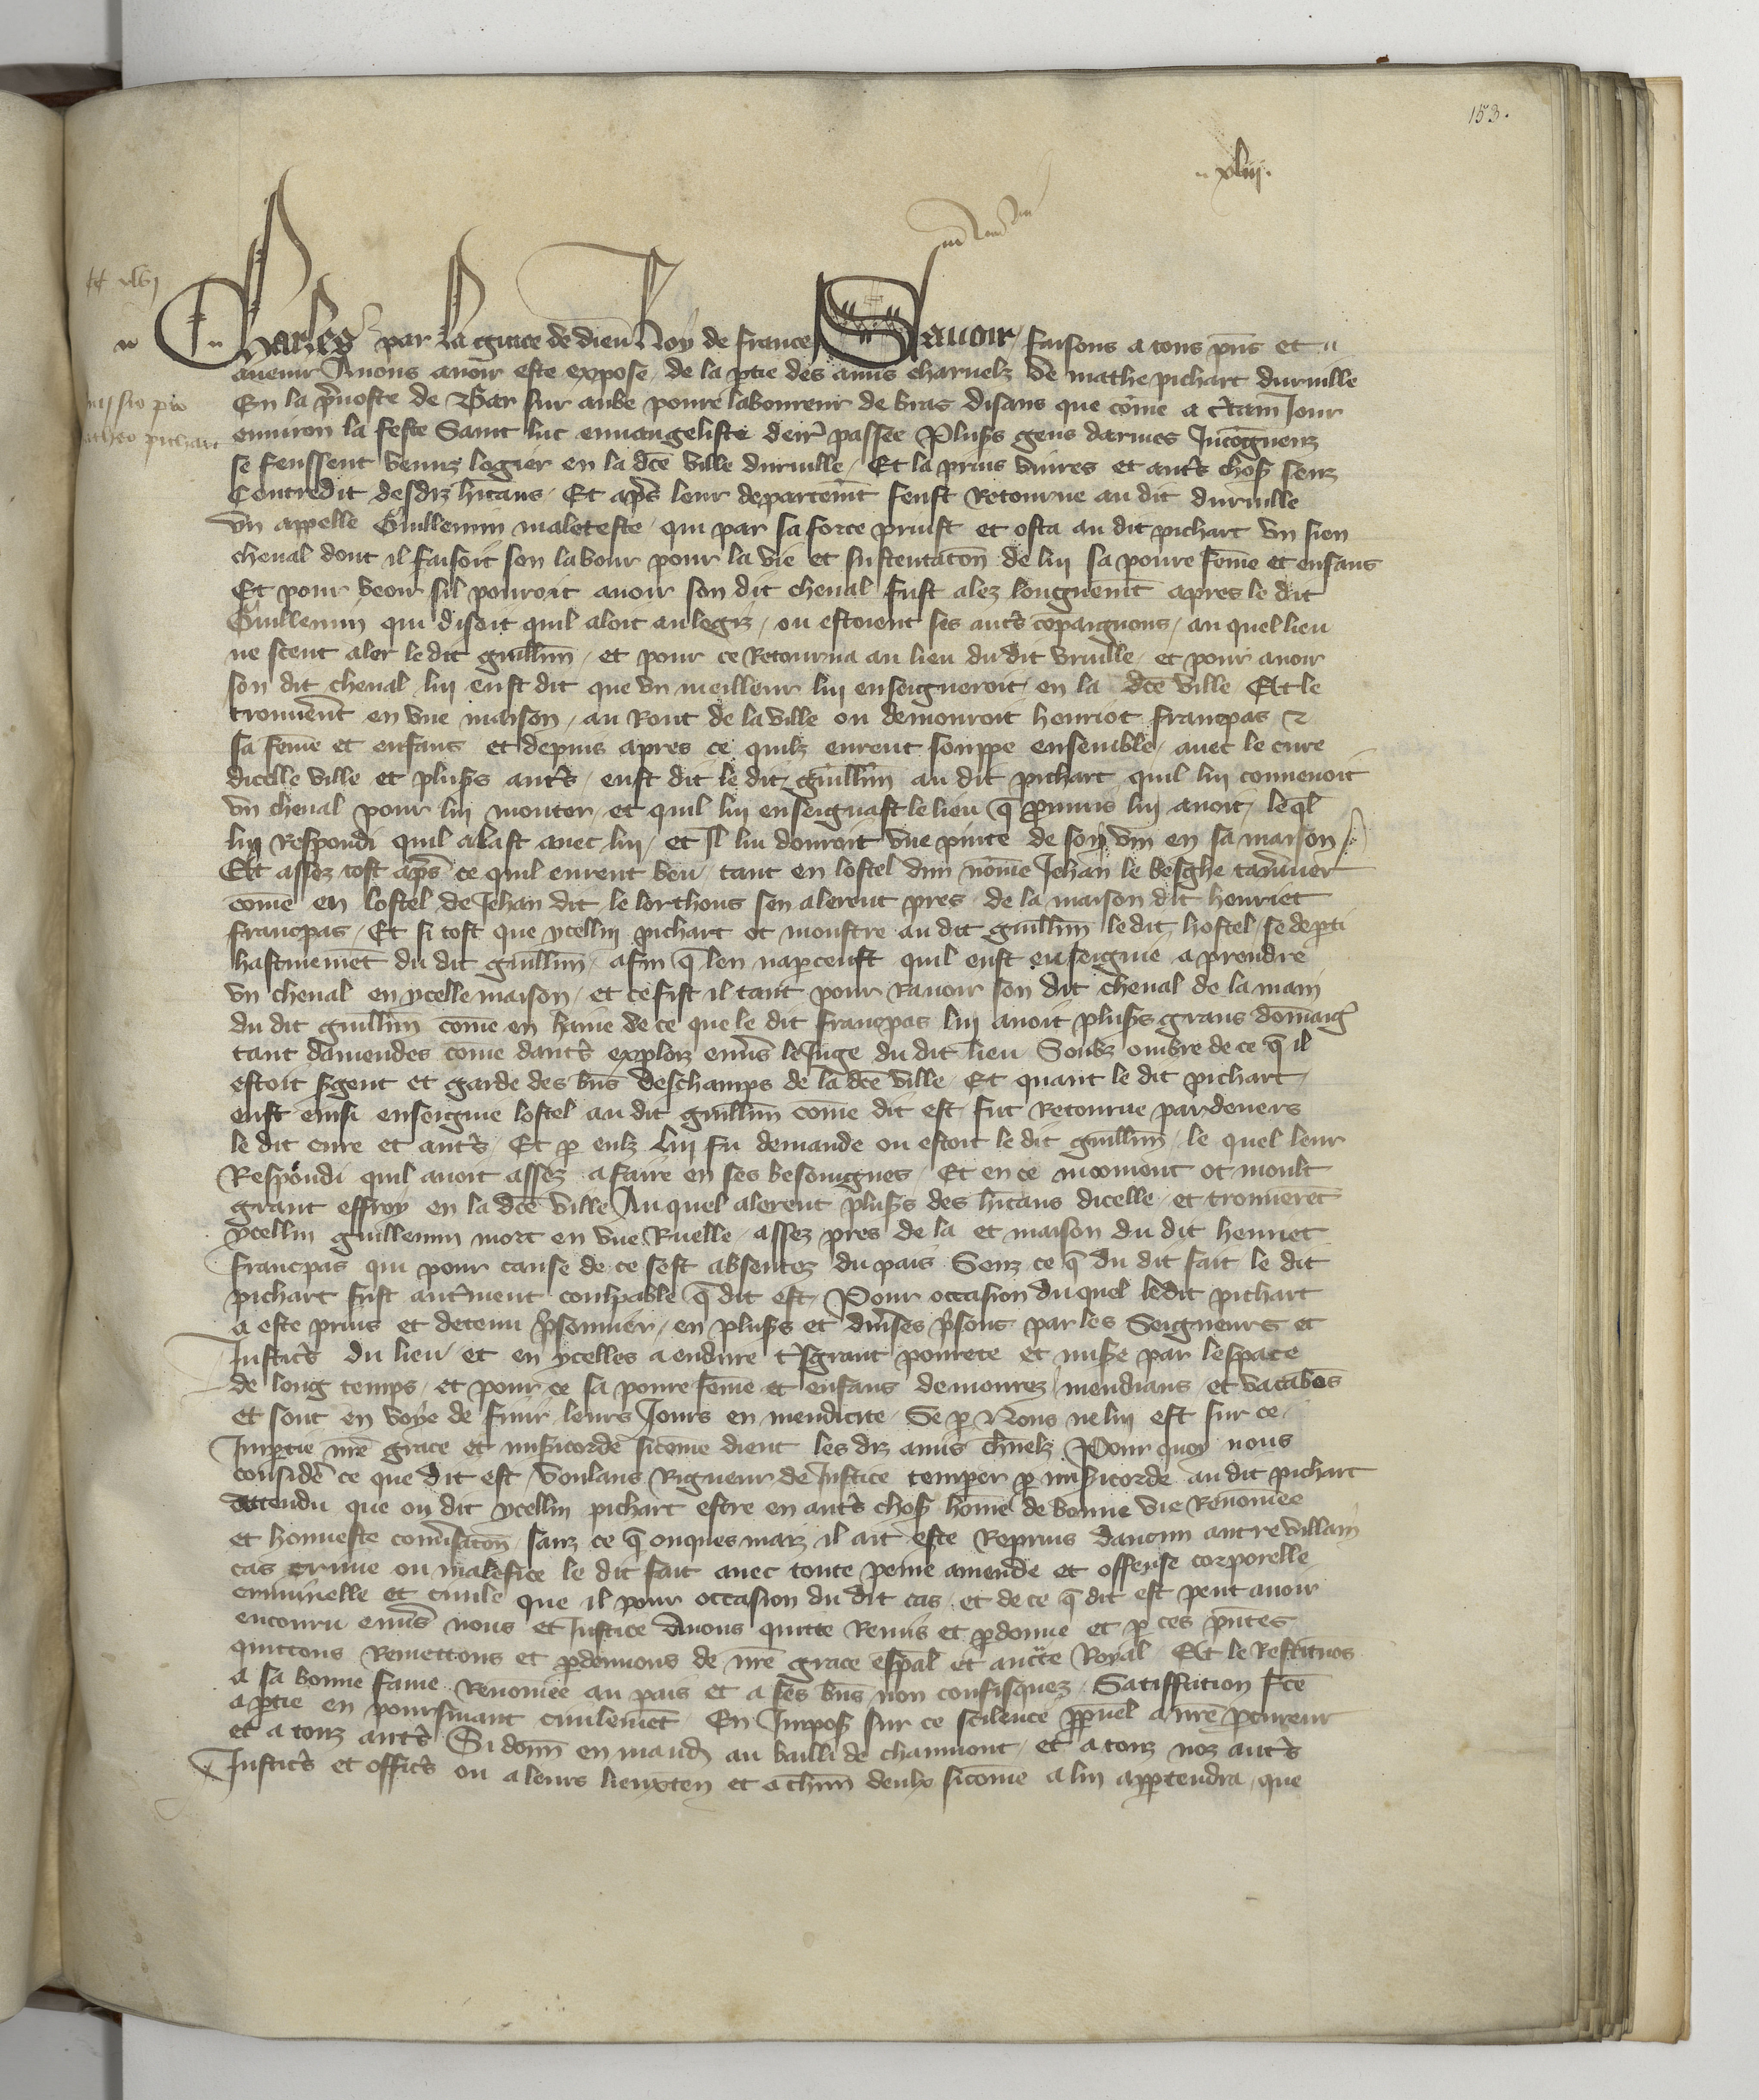 153.
xliiij.
Charles par la grace de dieu Roy de france Sauoir faisons a tous pñs et
auenir Nous auoir este expose de la ptie des amis charnelz de mathe pichart duruille
En la p̃uoste de Bar sur aube poure laboureur de bras disans que cõme a c̃tain Jour
enuiron la feste Saint luc euuangeliste derr̃ passee Plus̃s gens darmes Incogneuz
se feussent venuz logier en la dc̃e ville duruille / Et la prins viures et aut̃s chos̃ senz
Contredit desdiz hĩtans / Et ap̃s leur departem̃t feust Retourne au dit duruille
vn appelle Guillemin maleteste / qui par sa force prinst et osta au dit pichart vn sien
cheual dont il faisoit son labour pour la vie et sustentac̃on de lui sa poure fẽme et enfans
Et pour veoir sil pouroit auoir son dit cheual fust alez longuem̃t apres le dit
Guillemin qui disoit quil aloit au logiz / ou estoient ses aut̃s cõpaignons / au quel lieu
ne sceut aler le dit guillm̃ / et pour ce Retourna au lieu du dit vruille / et pour auoir
son dit cheual lui eust dit que vn meilleur lui enseigneroit en la dc̃e ville Et le
trouuerẽt en vne maison / au Bout de la ville ou demouroit henriot francpas &
sa fẽme et enfans et depuis apres ce quilz eurent souppe ensemble / auec le cure
dicelle ville et plus̃s aut̃s / eust dit le dit guillm̃ au dit pichart quil lui conuenoit
vn cheual pour lui monter / et quil lui enseignast le lieu q̃ promis lui auoit / leq̃l
lui Respondi quil alast auec lui / et Il lui donroit vne pinte de son vin en sa maison /
Et assez tost ap̃s ce quil eurent beu tant en lostel dun nõme Jehan le besghe tauernier
cõme en lostel de Jehan dit le lorthous sen alerent pres de la maison dit henriet
francpas / Et si tost que ycellui pichart ot monstre au dit guillm̃ le dit hostel / se dep̃ti
hastiuemẽt du dit guillm̃ / afin q̃ len nap̃ceust quil eust enseignie a prendre
vn cheual en ycelle maison / et ce fist il tant pour Rauoir son dit cheual de la main
du dit guillm̃ cõme en haine de ce que le dit francpas lui auoit plus̃s grans dõmaig̃
tant damendes cõme daut̃s exploiz enũs le Juge du dit lieu Soubz ombre de ce q̃ il
estoit s̃gent et garde des bñs deschamps de la dc̃e ville / Et quant le dit pichart
eust einsi enseignie lostel au dit guillm̃ cõme dit est / fut Retourne pardeuers
le dit cure et aut̃s / Et p̃ eulz lui fu demande ou estoit le dit guillm̃ / le quel leur
Respondi quil auoit assez a faire en ses besoingnes / Et en ce moment ot moult
grant effroy en la dc̃e ville Au quel alerent plus̃s des hĩtans dicelle / et trouuerẽt
ycellui guillemin mort en vne Ruelle / assez pres de la et maison du dit henriet
francpas qui pour cause de ce sest absentez du pais Senz ce q̃ du dit fait le dit
pichart fust aut̃ment coulpable q̃ dit est / Pour occasion du quel le dit pichart
a este prins et detenu p̃sonnier / en plus̃s et diũses p̃sons par les Seigneurs et
Justic̃s du lieu et en ycelles a endure t̃sgrant pourete et mis̃e par lespace
de long temps / et pour ce sa poure fẽme et enfans demourez mendians et vacabõs
et sont en voye de finir leurs Jours en mendicite / Se p̃ Nous ne lui est sur ce
Imp̃tie nr̃e grace et mis̃icorde sicõme dient les diz amis ch̃nelz Pour quoy nous
considẽ ce que dit est / voulans Rigueur de Justice temperer p̃ mis̃icorde au dit pichart
Attendu que on dit ycellui pichart estre en aut̃s chos̃ hõme de bonne vie Renõmee
et honneste conũsac̃on / sanz ce q̃ onques maiz il ait este Reprins daucun autre villain
cas crime ou malefice le dit fait auec toute peine amende et offense corporelle
criminelle et ciuile que il pour occasion du dit cas / et de ce q̃ dit est peut auoir
encouru enũs nous et Justice Auons quitte Remis et p̃donne et p̃ ces p̃ntes
quittons Remettons et p̃donnons de nr̃e grace esp̃al et aucte Royal Et le Restituõs
a sa bonne fame Renomee au pais et a ses bñs non confisquez / Satiffation fc̃e
a p̃tie en poursuiant ciuilemẽt En Impos̃ sur ce scilence p̃petuel a nr̃e p̃cureur
et a touz aut̃s Si donñ en mand̃ au bailli de chaumont / et a touz noz aut̃s
Justic̃s et offic̃s ou a leurs lieuxten et a ch̃un deulx sicõme a lui app̃tendra / que